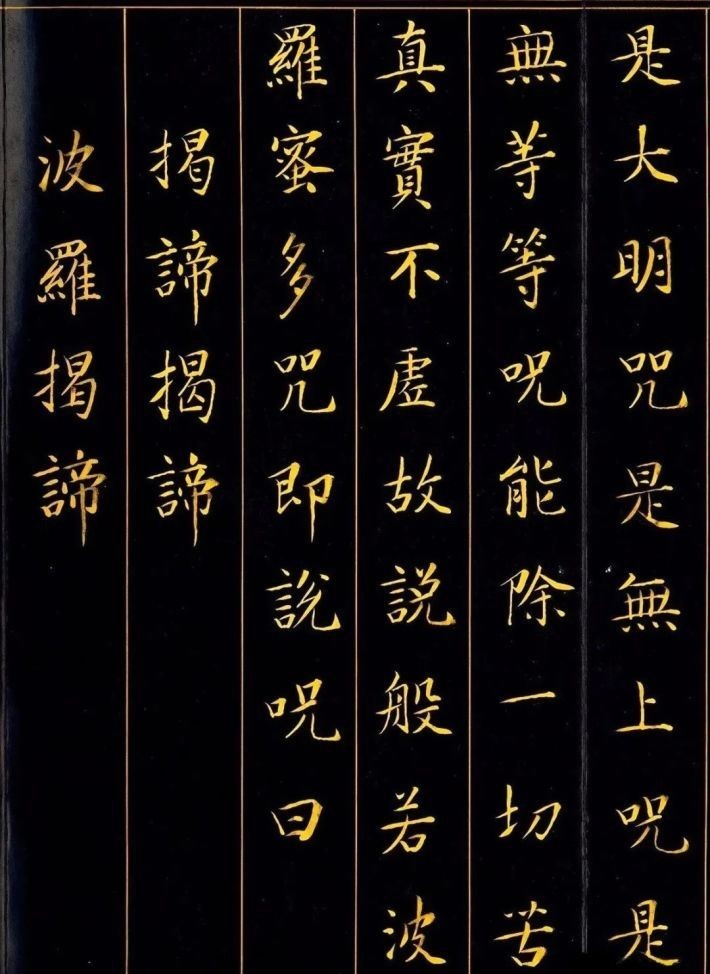 是大明咒是無上呪是
無等等呪能除一切苦
真實不虚故說般若波
羅蜜多咒即說呪曰
揭諦揭諦
波羅揭諦